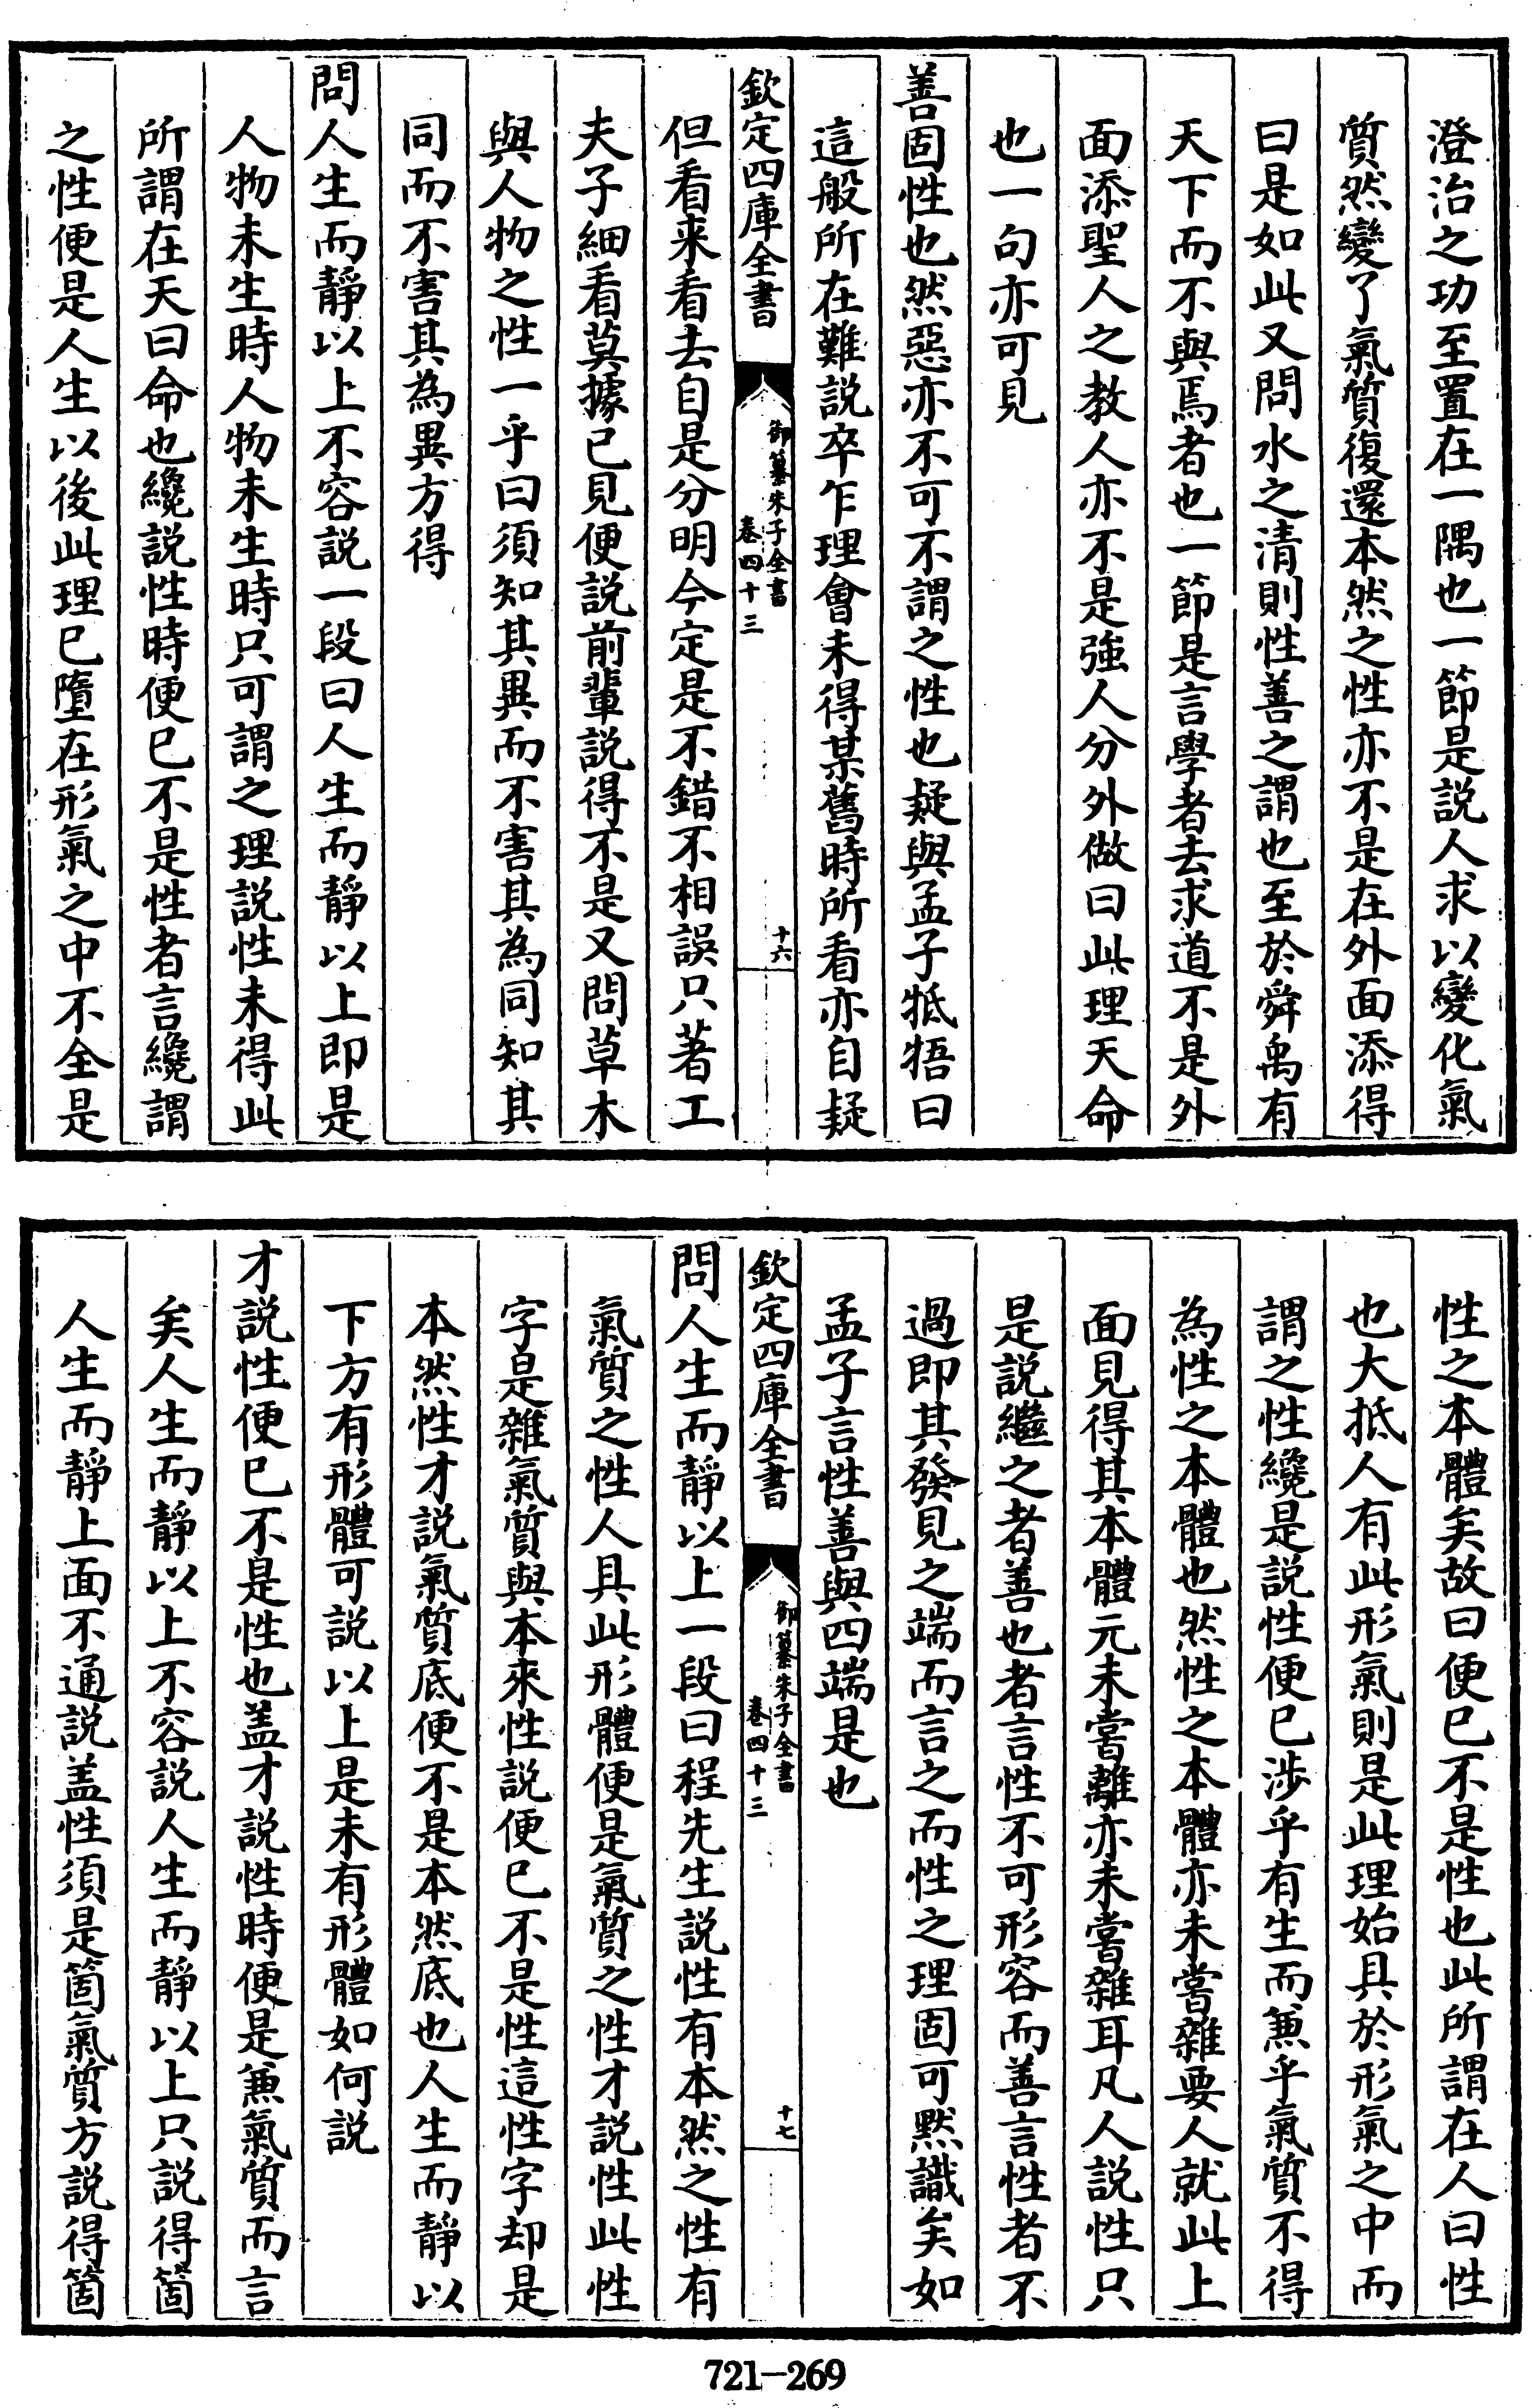 澄治之功至置在一隅也一節是説人求以變化氣
質然變了氣質復還本然之性亦不是在外面添得
曰是如此又問水之清則性善之謂也至於舜禹有
天下而不與焉者也一節是言學者去求道不是外
面添聖人之教人亦不是強人分外做曰此理天命
也一句亦可見
善固性也然惡亦不可不謂之性也疑與孟子牴牾曰
這般所在難説卒乍理會未得某舊時所看亦自疑
欽定四庫全書
御纂朱子全書
卷四十三
十六
但看來看去自是分明今定是不錯不相誤只著工
夫子細看莫據已見便説前輩説得不是又問草木
與人物之性一乎曰須知其異而不害其為同知其
同而不害其為異方得
問人生而靜以上不容説一段曰人生而靜以上即是
人物未生時人物未生時只可謂之理説性未得此
所謂在天曰命也纔説性時便已不是性者言纔謂
之性便是人生以後此理已墮在形氣之中不全是
性之本體矣故曰便已不是性也此所謂在人曰性
也大抵人有此形氣則是此理始具於形氣之中而
謂之性纔是説性便已涉乎有生而兼乎氣質不得
為性之本體也然性之本體亦未嘗雜要人就此上
面見得其本體元未嘗離亦未嘗雜耳凡人説性只
是説繼之者善也者言性不可形容而善言性者不
過即其發見之端而言之而性之理固可黙識矣如
孟子言性善與四端是也
欽定四庫全書
御纂朱子全書
卷四十三
十七
問人生而靜以上一段曰程先生説性有本然之性有
氣質之性人具此形體便是氣質之性才説性此性
字是雜氣質與本來性説便已不是性這性字却是
本然性才説氣質底便不是本然底也人生而靜以
下方有形體可説以上是未有形體如何説
才説性便已不是性也盖才説性時便是兼氣質而言
矣人生而靜以上不容説人生而靜以上只説得箇
人生而靜上面不通説盖性須是箇氣質方説得箇
721-269